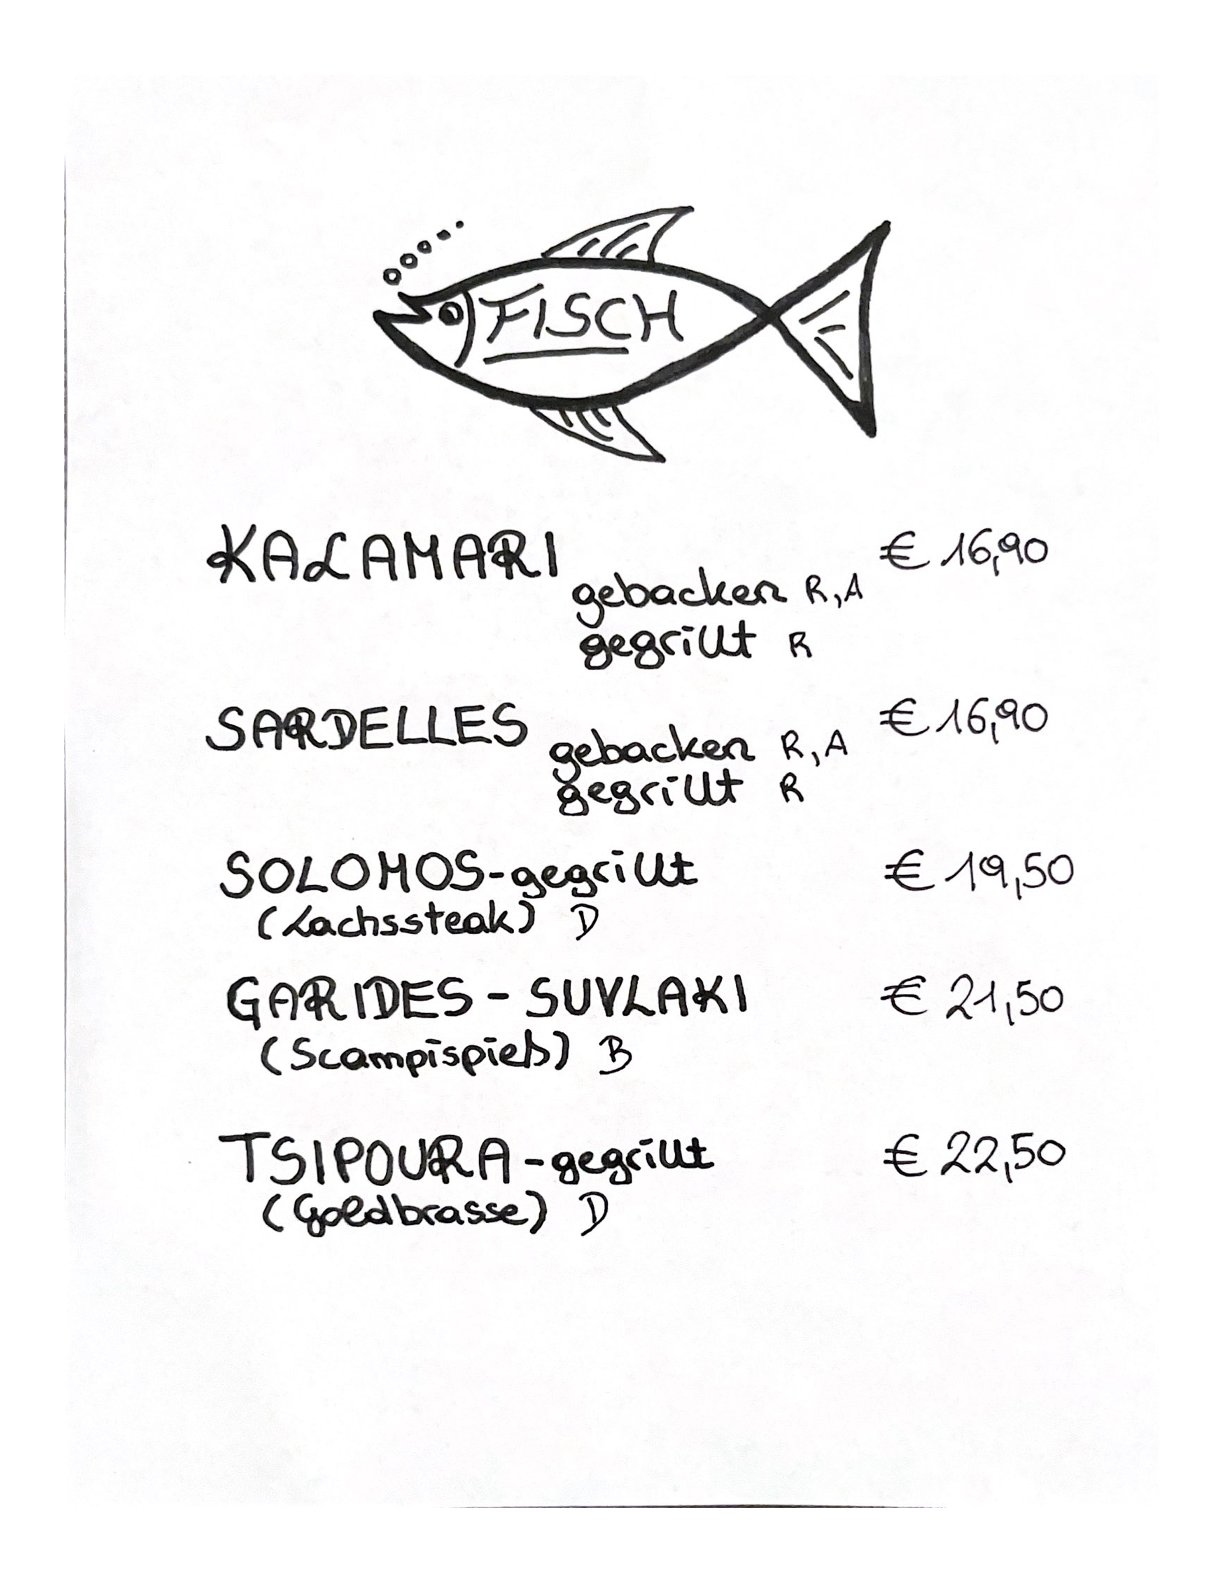 FISCH
KALAMARI € 16,90
gebacken R,A
gegrillt R
SARDELLES € 16,90
gebacken R,A
gegrillt R
SOLOMOS-gegrillt € 19,50
(Lachssteak) D
GARIDES - SUVLAKI € 21,50
(Scampispieß) B
TSIPOURA-gegrillt € 22,50
(Goldbrasse) D